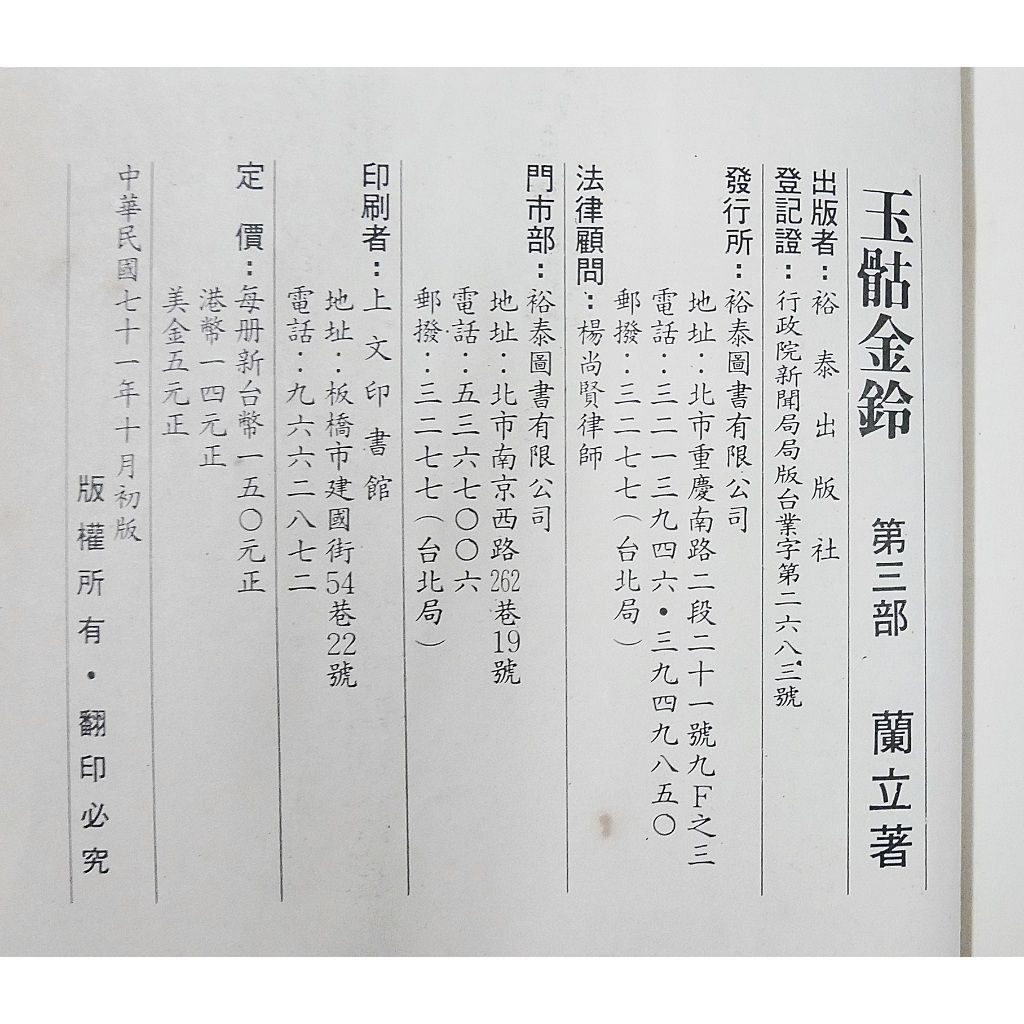 玉骷金鈴 第三部 蘭立著
出版者：裕泰出版社
登記證：行政院新聞局局版台業字第二六八三號
發行所：裕泰圖書有限公司
地址：北市重慶南路二段二十一號九F之三
電話：三二一三九四六•三九四九八五〇
郵撥：三二七七（台北局）
法律顧問：楊尚賢律師
門市部：裕泰圖書有限公司
地址：北市南京西路262巷19號
電話：五三六七〇〇六
郵撥：三二七七（台北局）
印刷者：上文印書館
地址：板橋市建國街54巷22號
電話：九六六二八七二
定價：每册新台幣一五〇元正
港幣一四元正
美金五元正
中華民國七十一年十月初版
版權所有•翻印必究